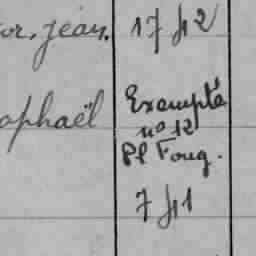 or, jean. 17 f 42
aphaël Exempté
nº 12
Pl Foug.
7 f 41